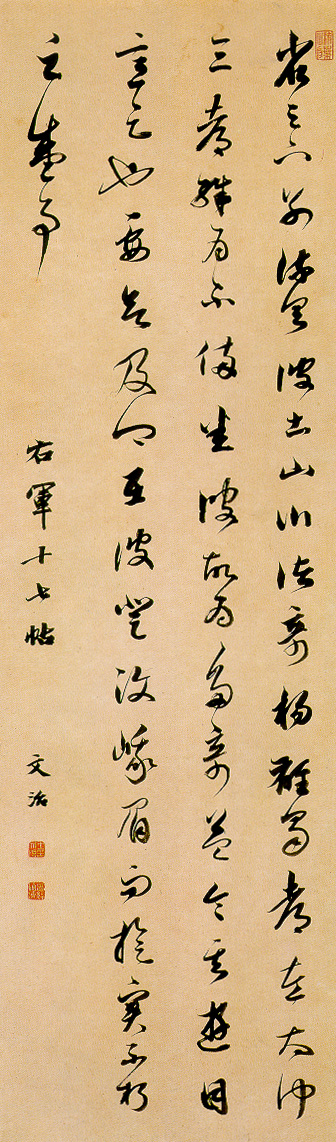 省足下別疏具彼土山川諸奇楊雄蜀都左太冲
三都殊為不備悉彼故為多奇益令其遊目
意足也要欲及卿在彼登汶峨眉而旋實不朽
之盛事
右軍十七帖
文治